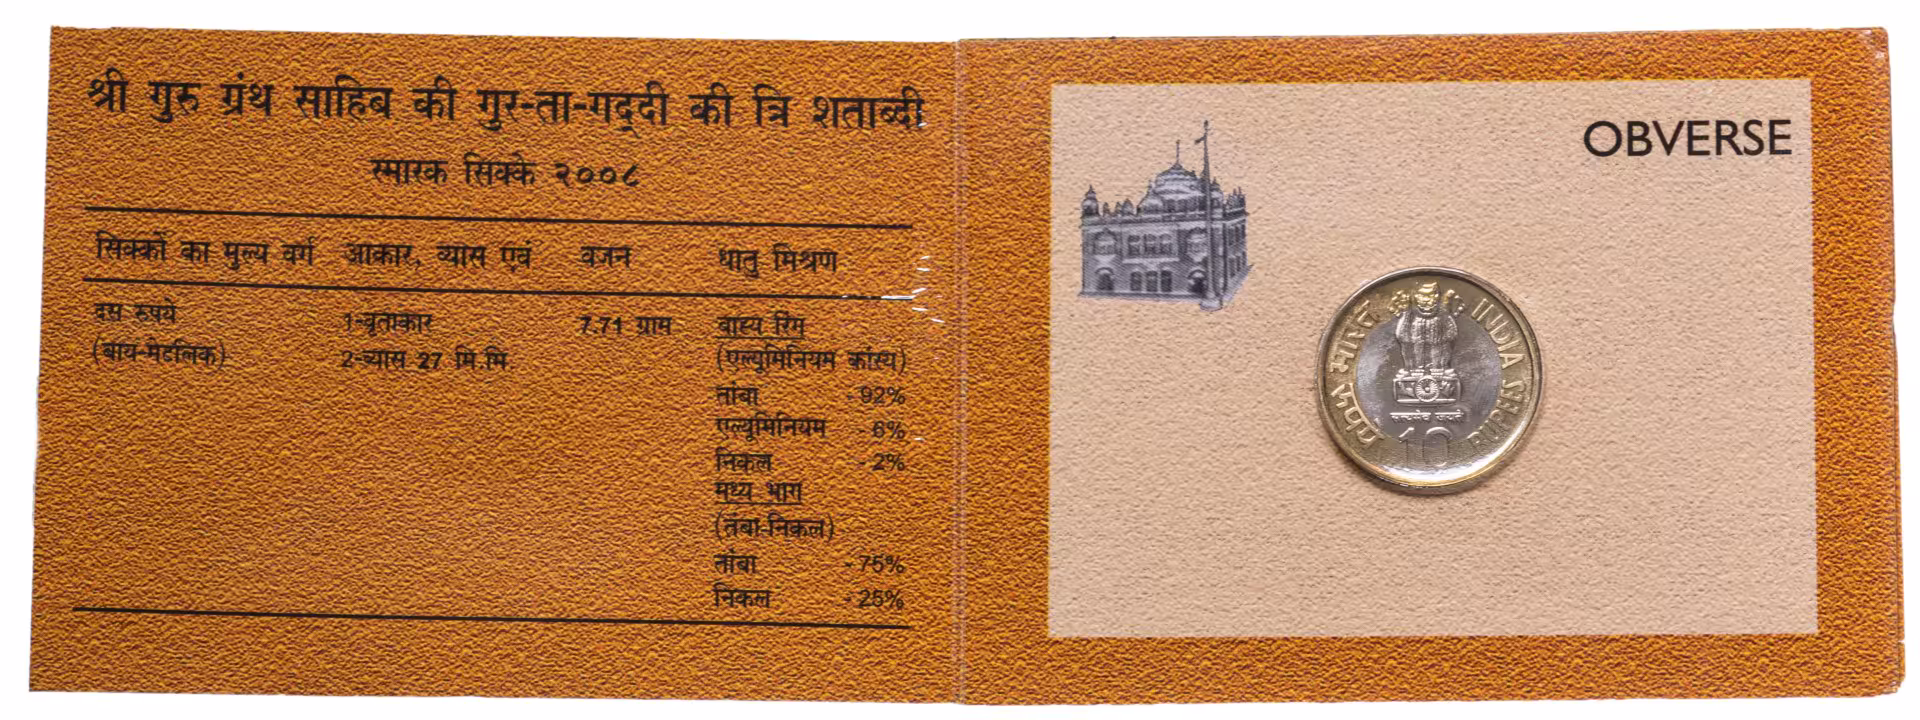 श्री गुरु ग्रंथ साहिब की गुर-ता-गद्दी की त्रि शताब्दी
स्मारक सिक्के २००८
सिक्कों का मुल्य वर्ग आकार, व्यास एवं वजन धातु मिश्रण
दस रुपये 1-वृताकार 7.71 ग्राम बाह्य रिंग
(बाय-मेटलिक) 2-व्यास 27 मि.मि (एल्युमिनियम कांस्य)
तांबा - 92%
एल्युमिनियम - 6%
निकल - 2%
मध्य भाग
(तंबा-निकल)
तांबा - 75%
निकल - 25%
OBVERSE
भारत INDIA
रुपये RUPEES
सत्यमेव जयते
10